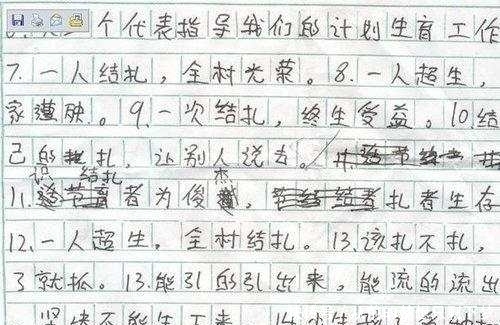 个代表指导我们的计划生育工作
7.一人结扎,全村光荣。8.一人超生,
家遭殃。9.一次结扎,终生受益。10.结
己的扎,让别人说去。
识 结扎 杰
11.者为俊,扎者生存
12.一人超生。全村结扎。13.该扎不扎,
了就抓。13.能引的引出来,能流的流出
坚决不能生下来